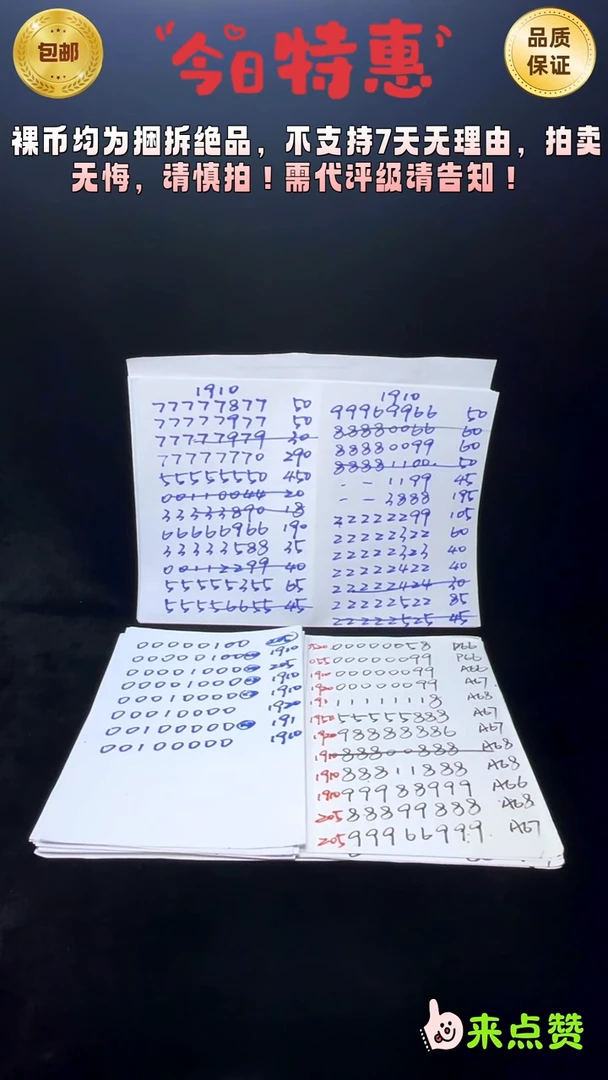 包邮
今日特惠
品质
保证
裸币均为捆拆绝品，不支持7天无理由，拍卖
无悔，请慎拍！需代评级请告知！
1910
77777877 50
77777977 50
77777979 30
77777770 290
55555550 450
00110044 20
33333890 18
66666966 190
33333588 35
00112299 40
55555355 65
55556655 45
1910
99969966 50
88880066 60
88880099 60
88881100 50
- - 1199 45
- - 3888 195
22222299 105
22222322 60
22222323 40
22222422 40
22222424 30
22222522 85
22222525 45
00000100
00000100 1910
00001000 205
00001000 1910
00010000 1910
00010000 1920
00100000 191
00100000 1910
00000058 A66
00000099 P66
1910 00000099 A66
1920 00000099 A67
191 11111118 A68
1950 55555883 A67
1920 98888886 A67
1910 88800888 A68
1910 88811888 A68
1910 99988999 A66
205 88899888 A68
205 99966999 A67
来点赞